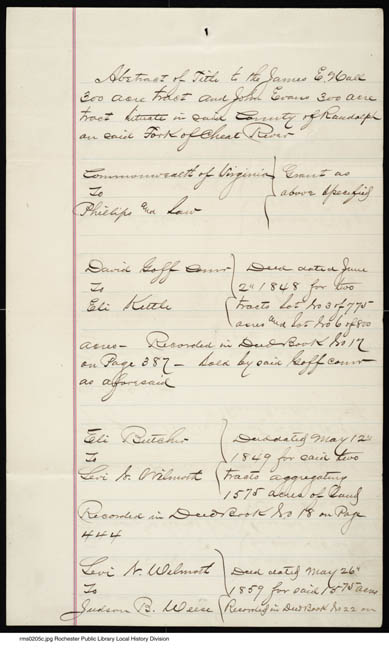 1
Abstract of Title to the James E. Hall
300 acre tract and John Evans 300 acre
tract situate in said County of Randolph
on said Fork of Cheat River
Commonwealth of Virginia
To
Phillips and Law
Grant as
above specified
David Goff Comr
To
Eli Kittle
Deed dated June
2nd 1848 for two
tracts Lot No 3 of 775
acres and Lot No 6 of 800
acres - Recorded in Deed Book No 17
on Page 387 - Sold by said Goff comr
as aforesaid
Eli Butcher
To
Levi D. Wilmoth
Deed dated May 12th
1849 for said two
tracts aggregating
1575 acres of land
Recorded in Deed Book No 18 on Page
444
Levi D. Wilmoth
To
Judson B. Weese
Deed dated May 26th
1859 for said 1575 acres
Recorded in Deed Book No 22 on
rms0205c.jpg Rochester Public Library Local History Division